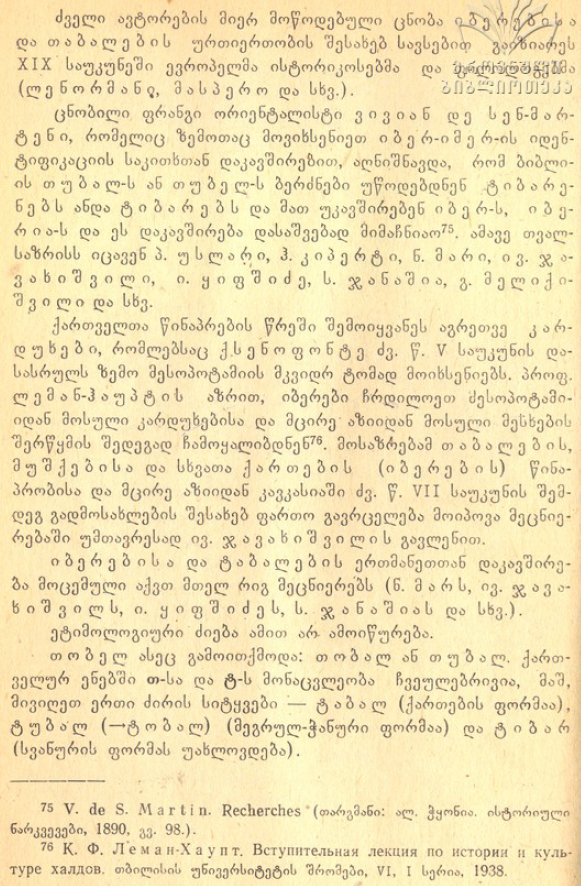 ძველი ავტორების მიერ მოწოდებული ცნობა იბერებისა
და თაბალების ურთიერთობის შესახებ სავსებით გაიზიარეს
XIX საუკუნეში ევროპელმა ისტორიკოსებმა და
(ლენორმანი, მასპერო და სხვ.).
ცნობილი ფრანგი ორიენტალისტი ვივიან დე სენ-მარ-
ტენი, რომელიც ზემოთაც მოვიხსენიეთ იბერ-იმერ-ის იდენ-
ტიფიკაციის საკითხთან დაკავშირებით, აღნიშნავდა, რომ ბიბლი-
ის თუბალ-ს ან თუბელ-ს ბერძნები უწოდებდნენ ტიბარე-
ნებს ანდა ტიბარებს და მათ უკავშირებენ იბერ-ს, იბე-
რია-ს და ეს დაკავშირება დასაშვებად მიმაჩნიაო⁷⁵. ამავე თვალ-
საზრისს იცავენ პ. უსლარი, ჰ. კიპერტი, ნ. მარი, ივ. ჯა-
ვახიშვილი, ი. ყიფშიძე, ს. ჯანაშია, გ. მელიქი-
შვილი და სხვ.
ქართველთა წინაპრების წრეში შემოიყვანეს აგრეთვე კარ-
დუხები, რომლებსაც ქსენოფონტე ძვ. წ. V საუკუნის და-
სასრულს ზემო მესოპოტამიის მკვიდრ ტომად მოიხსენიებს. პროფ.
ლემან-ჰაუპტის აზრით, იბერები ჩრდილოეთ მესოპოტამი-
იდან მოსული კარდუხებისა და მცირე აზიიდან მოსული მესხების
შერწყმის შედეგად ჩამოყალიბდნენ⁷⁶. მოსაზრებამ თაბალების,
მუშქებისა და სხვათა ქართების (იბერების) წინა-
პრობისა და მცირე აზიიდან კავკასიაში ძვ. წ. VII საუკუნის შემ-
დეგ გადმოსახლების შესახებ ფართო გავრცელება მოიპოვა მეცნიე-
რებაში უმთავრესად ივ. ჯავახიშვილის გავლენით.
იბერებისა და ტაბალების ერთმანეთთან დაკავშირე-
ბა მოცემული აქვთ მთელ რიგ მეცნიერებს (ნ. მარს, ივ. ჯავა-
ხიშვილს, ი. ყიფშიძეს, ს. ჯანაშიას და სხვ.).
ეტიმოლოგიური ძიება ამით არ ამოიწურება.
თობელ ასეც გამოითქმოდა: თობალ ან თუბალ. ქართ-
ველურ ენებში თ-სა და ტ-ს მონაცვლეობა ჩვეულებრივია, მაშ,
მივიღეთ ერთი ძირის სიტყვები — ტაბალ (ქართების ფორმაა),
ტუბალ (→ტობალ) (მეგრულ-ჭანური ფორმაა) და ტიბარ
(სვანურის ფორმას უახლოვდება).
75 V. de S. Martin. Recherches (თარგმანი: ალ. ჭყონია. ისტორიული
ნარკვევები, 1890, გვ. 98.).
76 К. Ф. Леман-Хаупт. Вступительная лекция по истории и куль-
туре халдов. თბილისის უნივერსიტეტის შრომები, VI, I სერია, 1938.